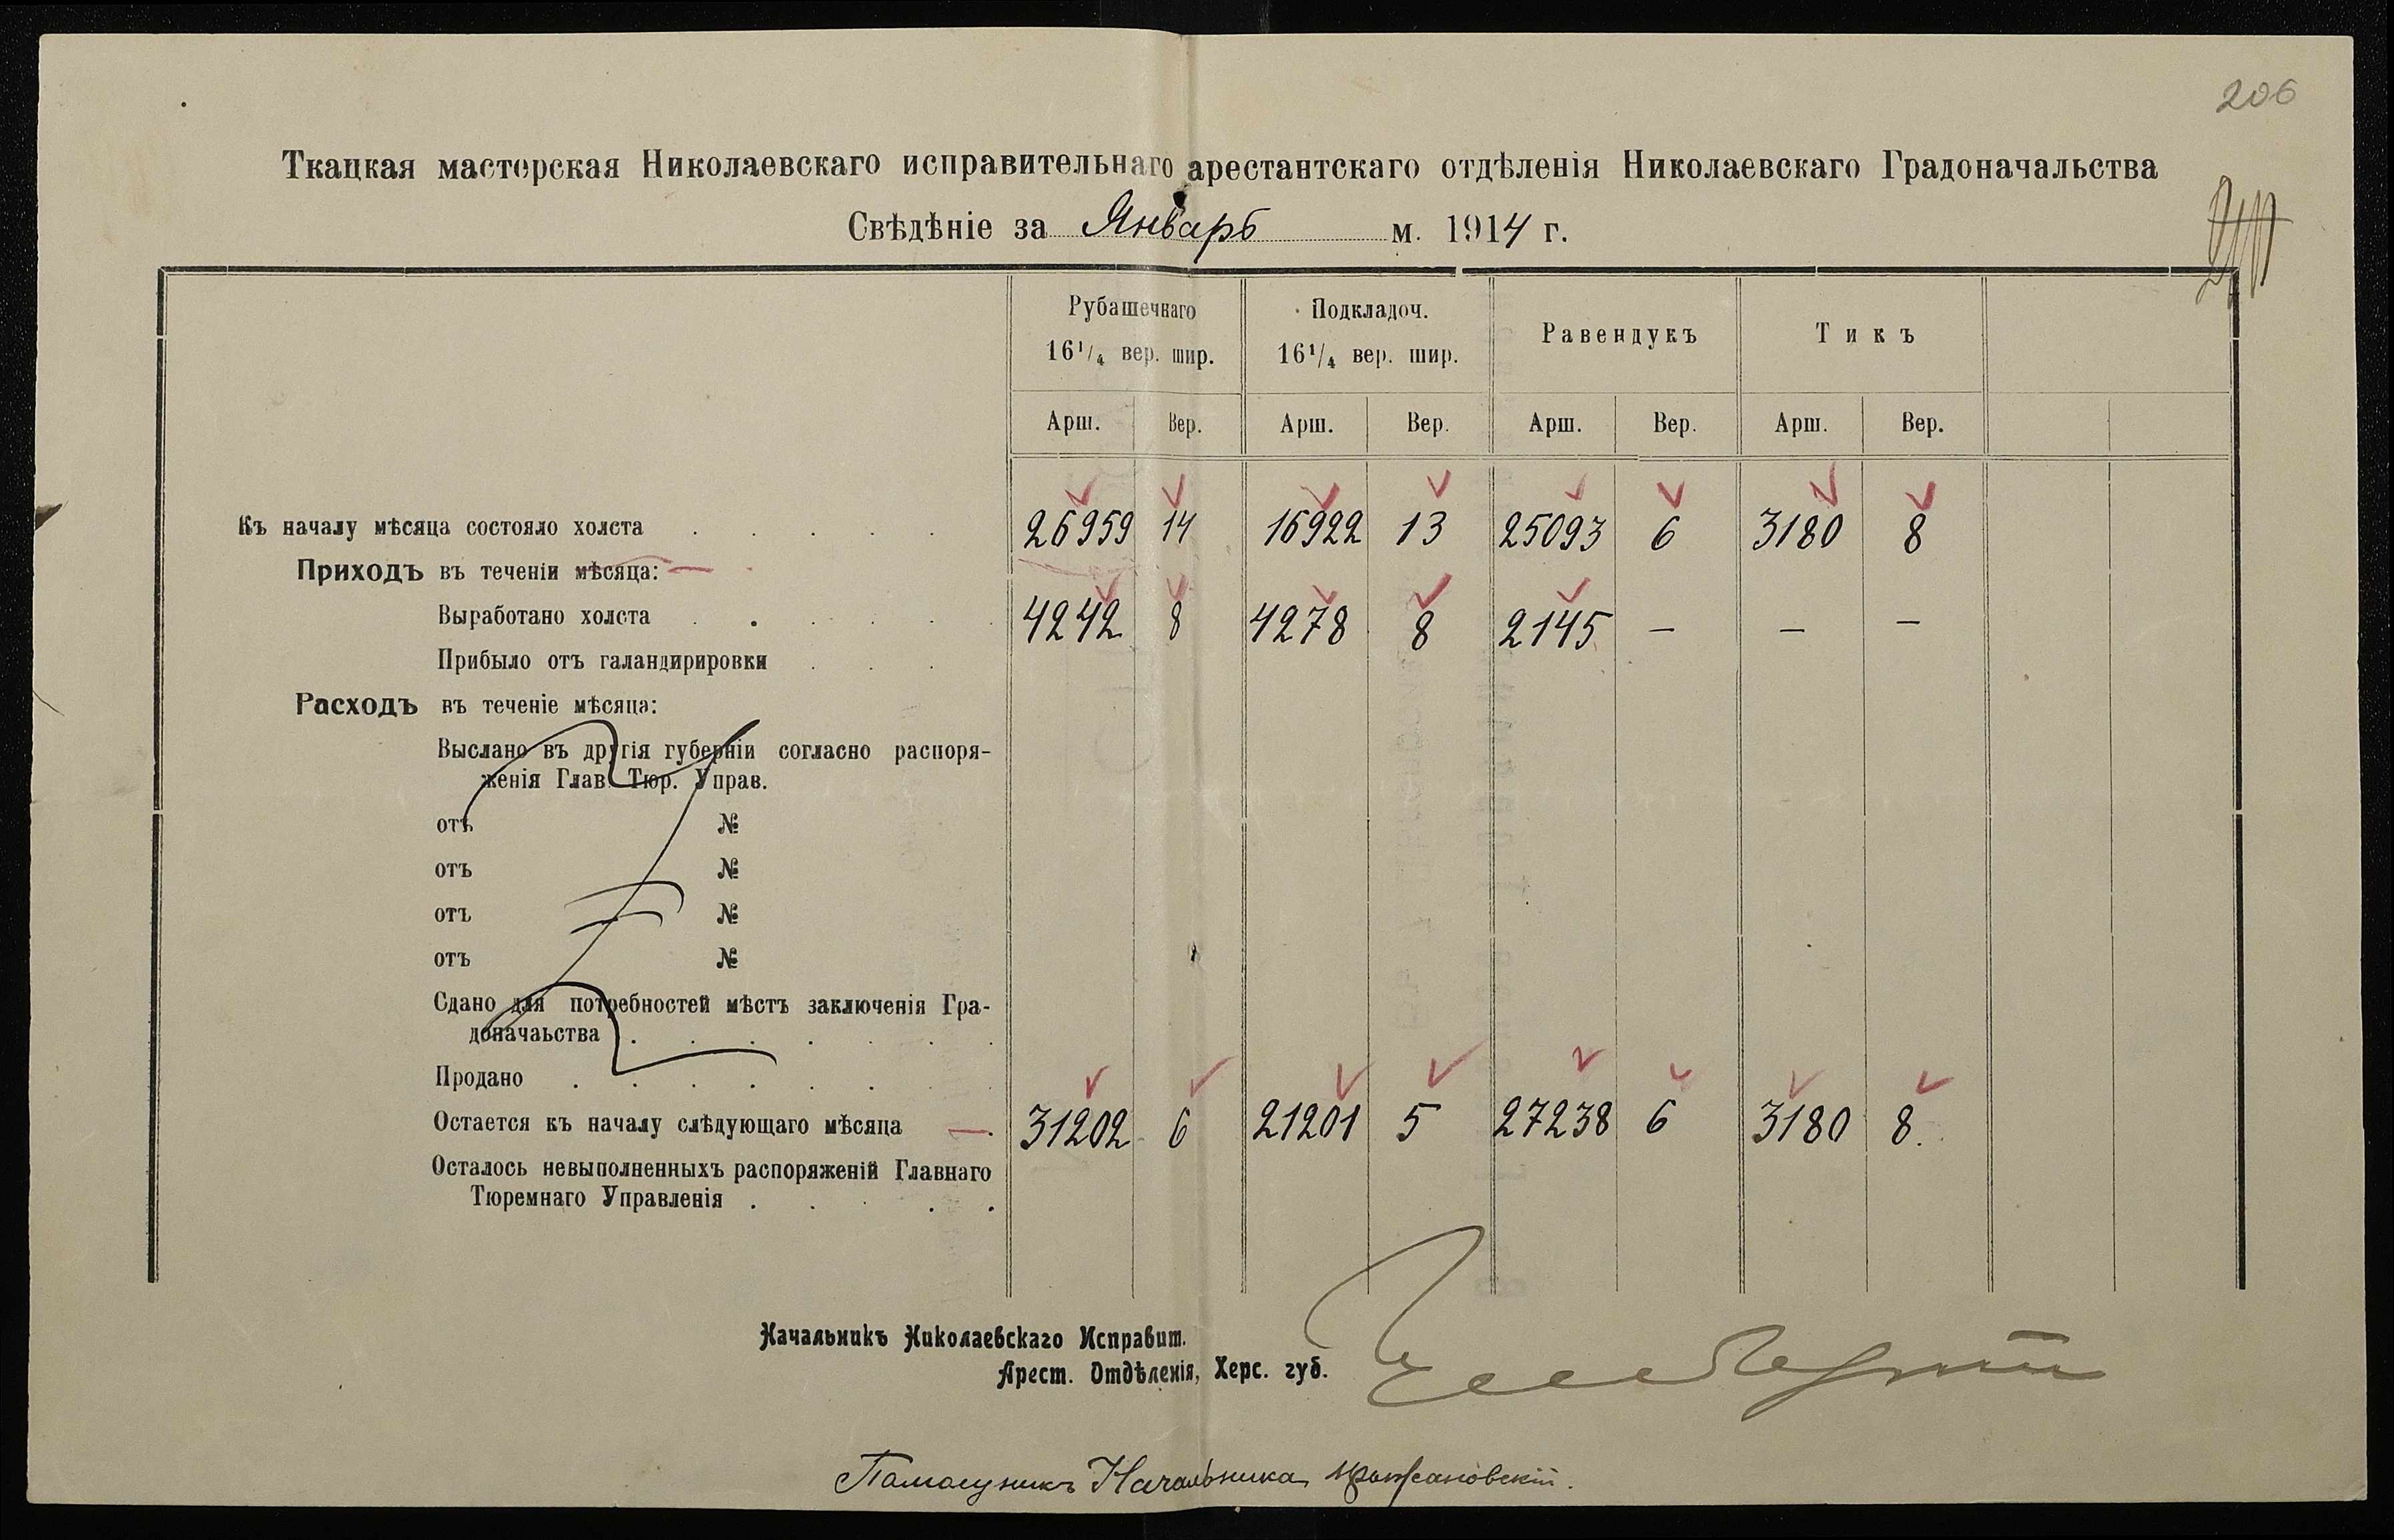 206
Ткацкая мастерская Николаевскаго исправительнаго арестантскаго отдѣленія Николаевскаго Градоначальства
Свѣдѣніе за Январь м. 1914 г.
Рубашечнаго 16¹/₄ вер. шир. Подкладоч. 16¹/₄ вер. шир. Равендукъ Тикъ
Арш. Вер. Арш. Вер. Арш. Вер. Арш. Вер.
Къ началу мѣсяца состояло холста . . . . . 26959 14 16922 13 25093 6 3180 8
Приходъ въ теченіи мѣсяца:
Выработано холста . . . . . . 4242 8 4278 8 2145 — — —
Прибыло отъ галандирировки . . .
Расходъ въ теченіе мѣсяца:
Выслано въ другія губерніи согласно распоря-
женія Глав. Тюр. Управ.
отъ №
отъ №
отъ №
отъ №
Сдано для потребностей мѣстъ заключенія Гра-
доначаьства . . . . . . .
Продано . . . . . . . .
Остается къ началу слѣдующаго мѣсяца 31202 6 21201 5 27238 6 3180 8.
Осталось невыполненныхъ распоряженій Главнаго
Тюремнаго Управленія . . . . .
Начальникъ Николаевскаго Исправит.
Арест. Отдѣленія, Херс. губ.
Помощникъ Начальника